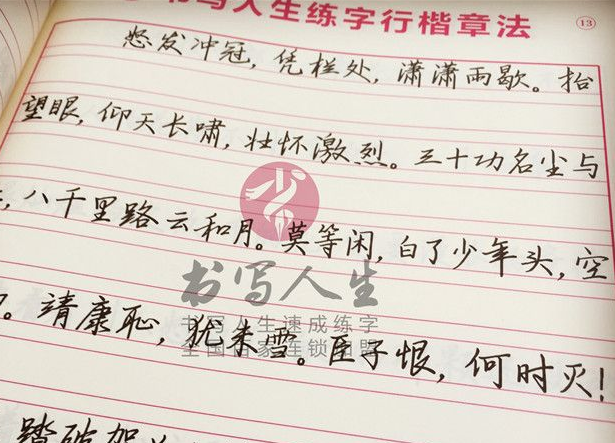 书写人生练字行楷章法
13
怒发冲冠，凭栏处，潇潇雨歇。抬
望眼，仰天长啸，壮怀激烈。三十功名尘与
，八千里路云和月。莫等闲，白了少年头，空
。靖康耻，犹未雪。臣子恨，何时灭！
踏破贺
书写人生
书写人生速成练字
全国百家连锁加盟